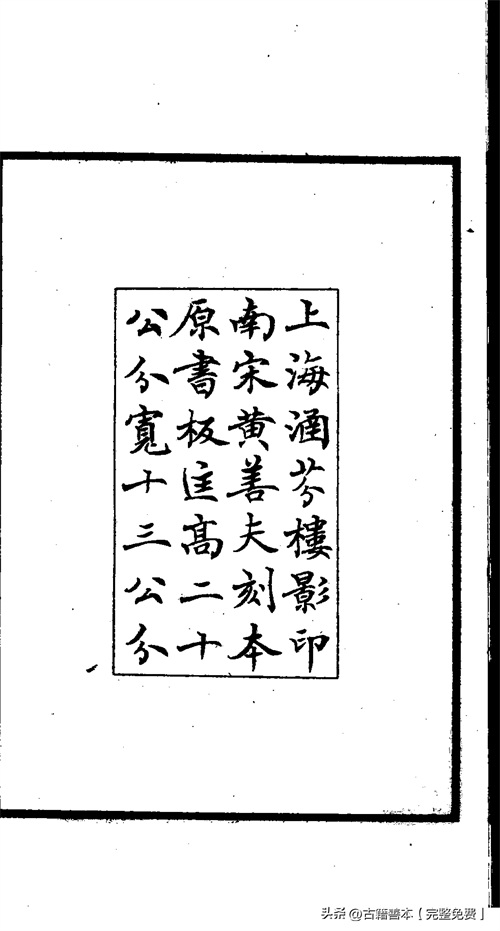 上海涵芬樓影印
南宋黄善夫刻本
原書板匡髙二十
公分寬十三公分
头条 @古籍善本【完整免费】